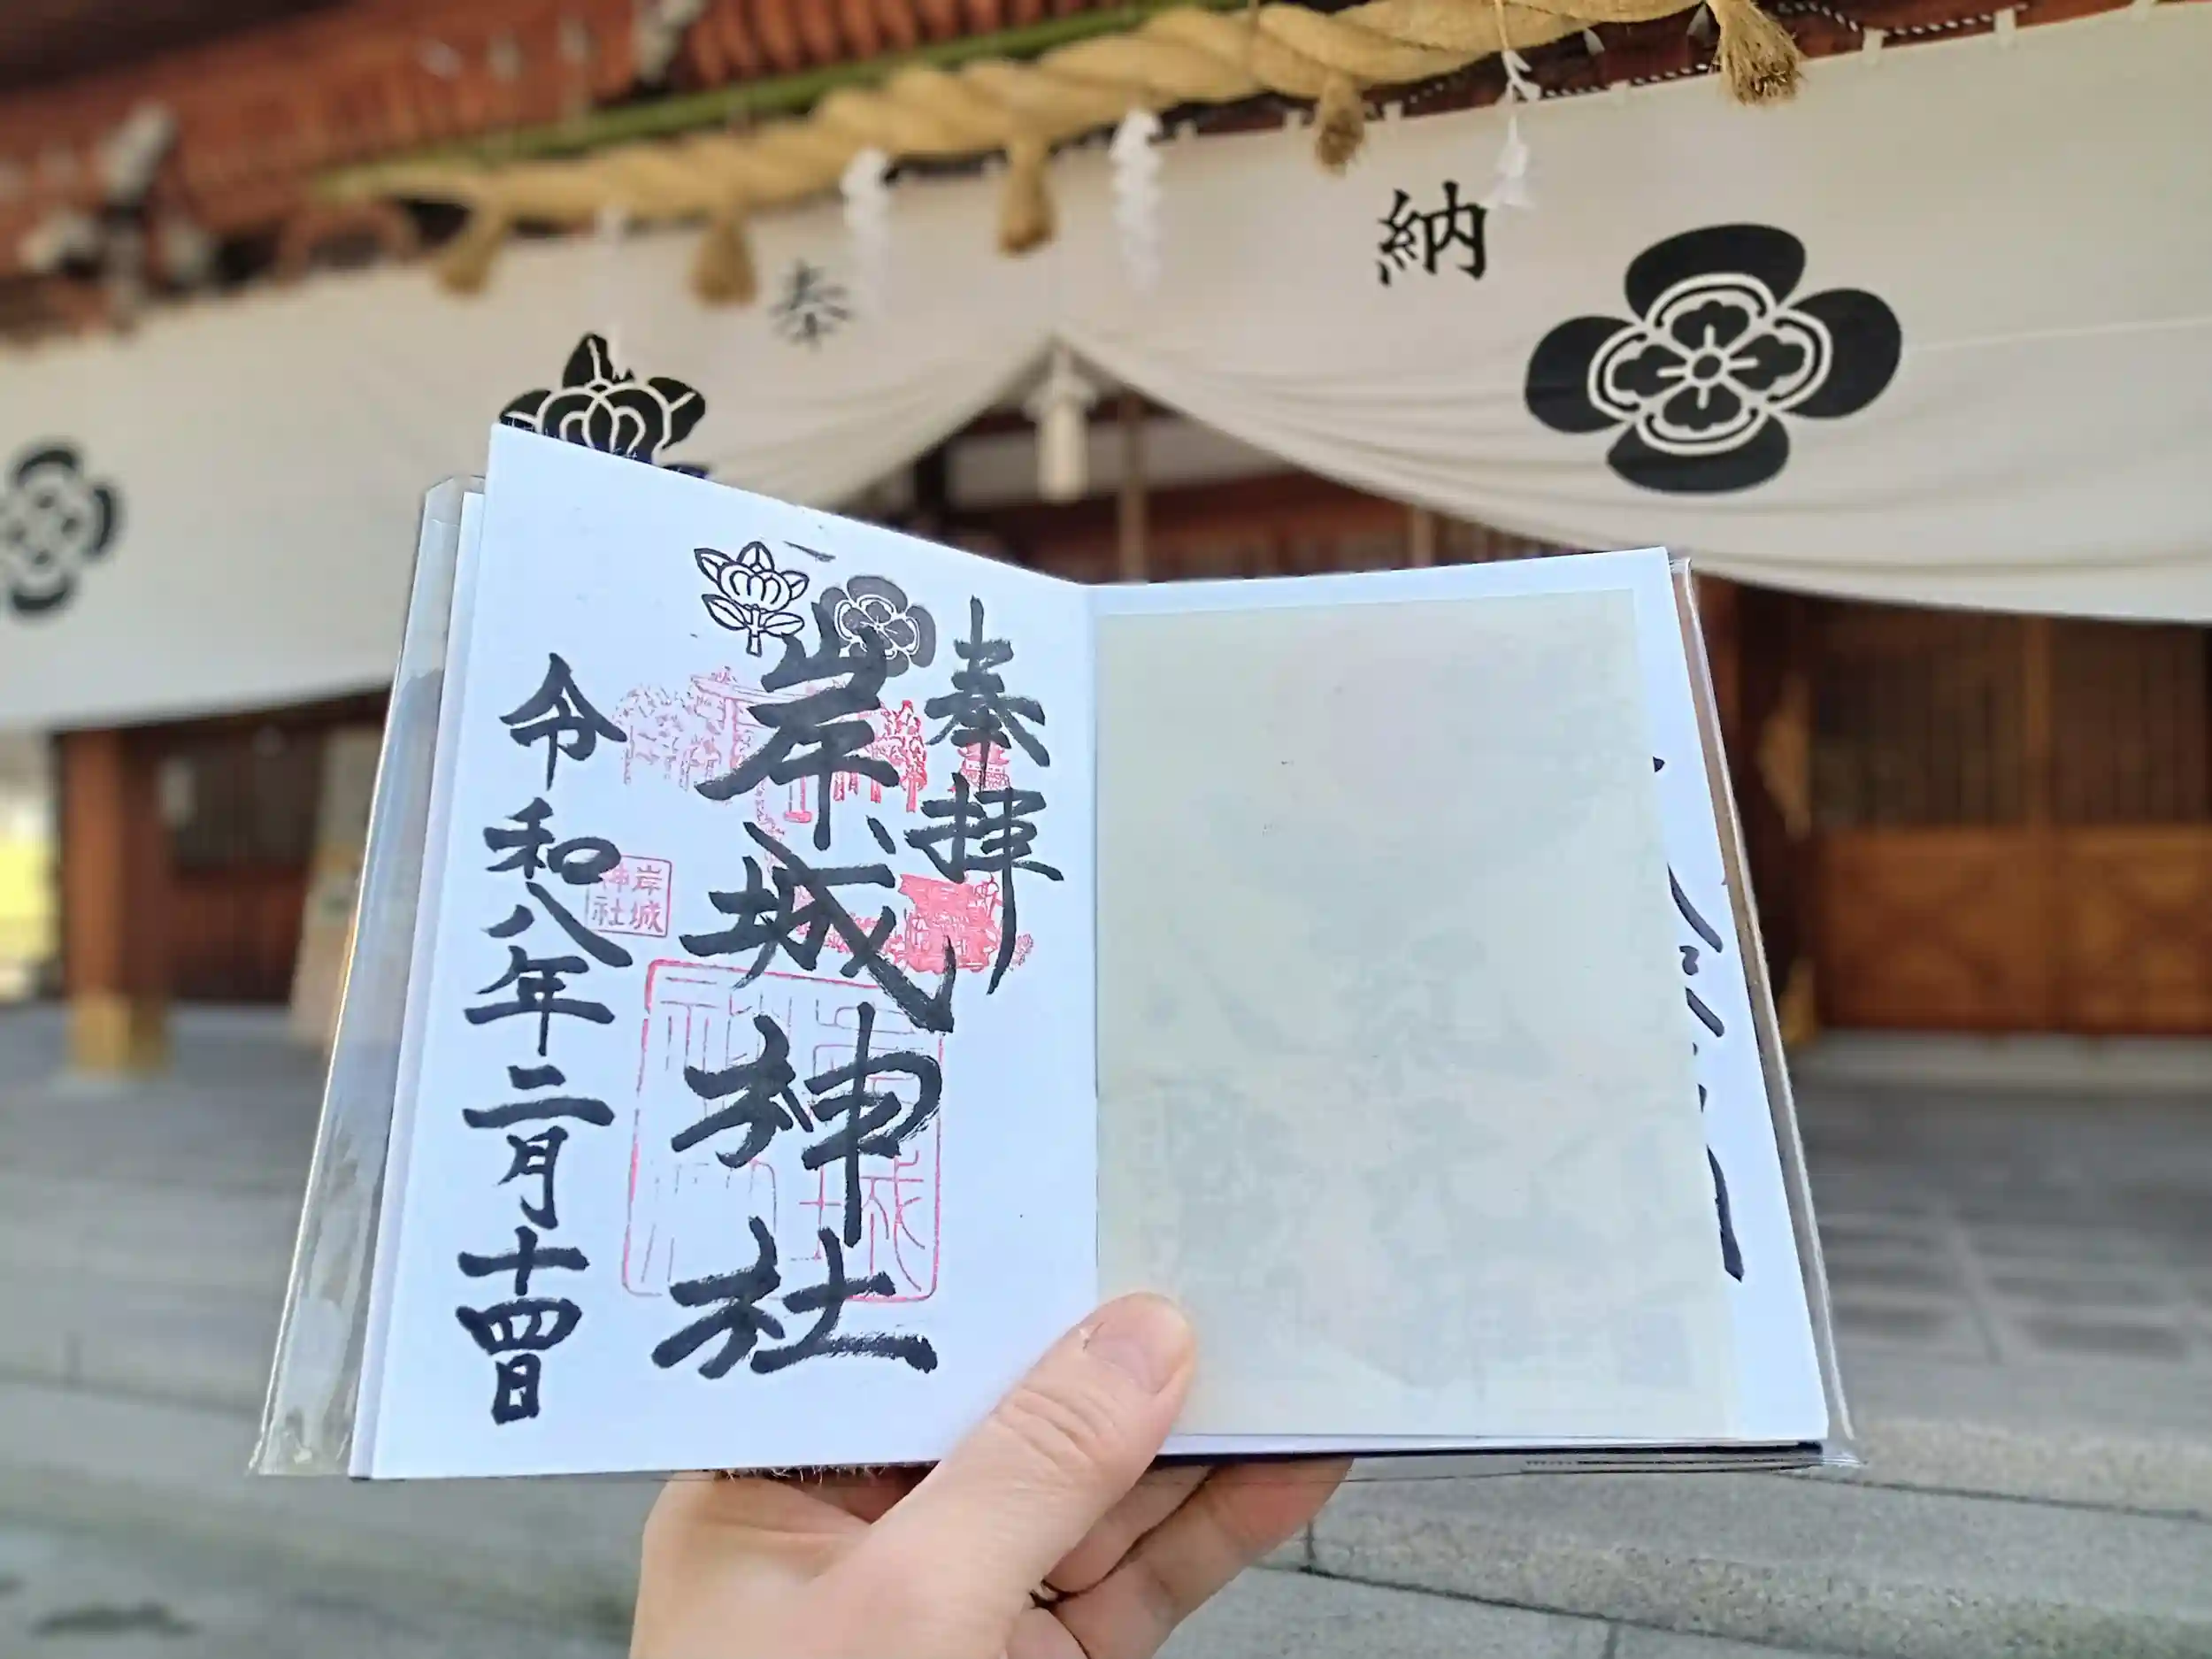 奉
納
奉拝
岸城神社
令和八年二月十四日
岸城
神社